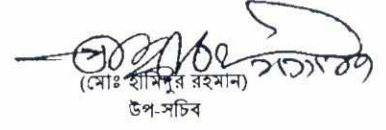 (মোঃ হামিদুর রহমান)
উপ-সচিব